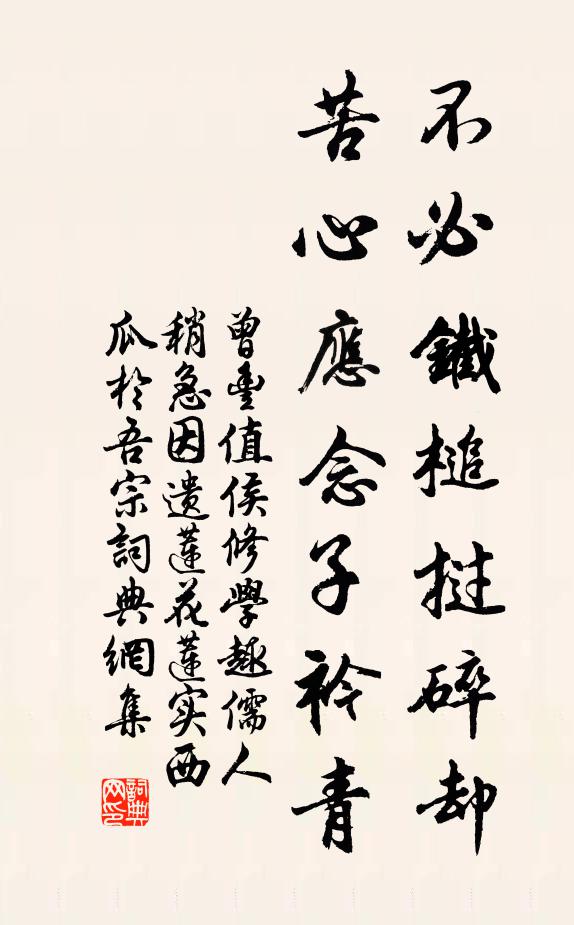 不必鐵槌撻碎却
苦心應念子衿青
曾豊值侯修學趣儒人
稍急因遺蓮花蓮实西
瓜於吾宗詞典網集
詞典网印